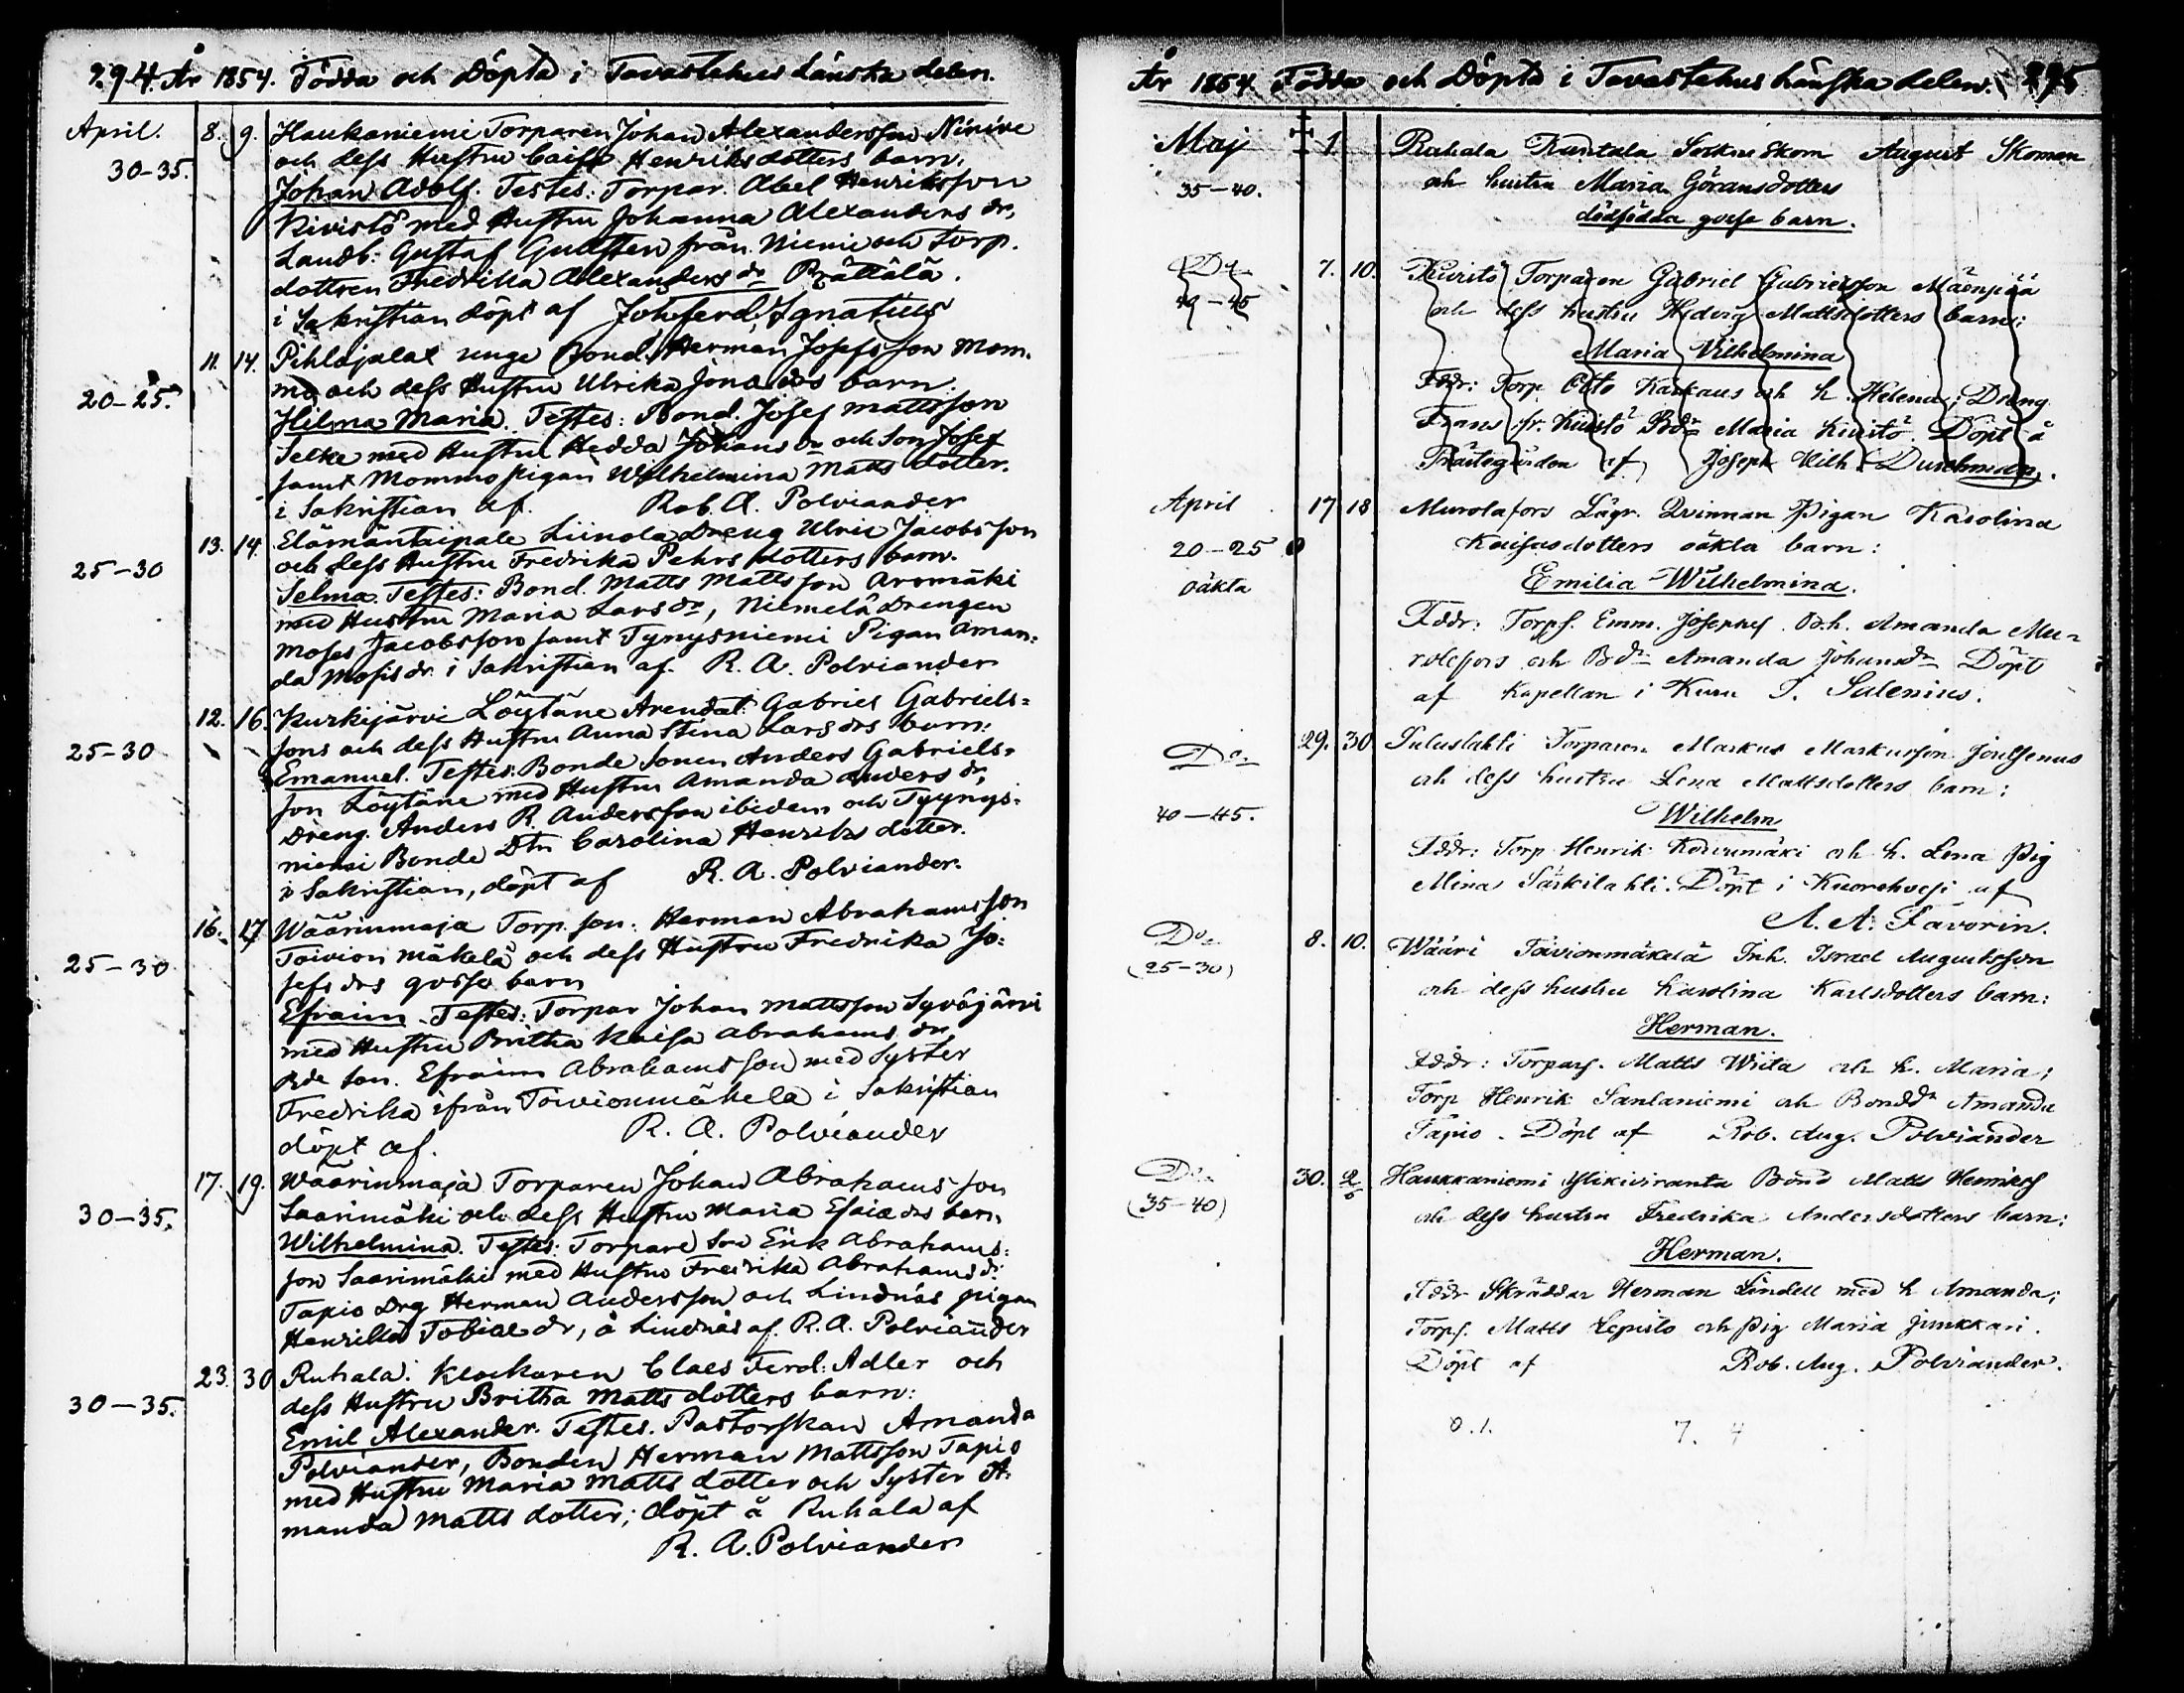 294. År 1854. Födda och Döpta i Tavastehus länska delen.
April. 8. 9. Haukaniemi Torparen Johan Alexandersson Ninive
30-35. och dess Hustru Caisa Henriksdotters barn.
Johan Adolf. Testes: Torpar. Abel Henriksson
Kivistö med Hustru Johanna Alexanders dr,
Landb: Gustaf Gustafsson från Niemi och Torp.
dottren Fredrika Alexanders dr Prättälä.
i Sakristian döpt af Joh. Ferd. Ignatius
11. 14. Pihlajalax unge Bond. Herman Josefsson Mom-
mo och dess Hustru Ulrika Jonæ drs barn.
20-25. Hilma Maria. Testes: Bond. Josef Mattsson
Selke med Hustru Hedda Johans dr och Son Josef
samt Mommo pigan Wilhelmina Matts dotter.
i Sakristian af. Rob. A. Polviander
13. 14. Elämäntaipale Liinola Dreng Ulric Jacobsson
25-30 och dess Hustru Fredrika Pehrs dotters barn.
Selma. Testes: Bond. Matts Mattsson Aromäki
med Hustru Maria Lars dr, Niemelä Drengen
Moses Jacobsson samt Tynysniemi Pigan Aman-
da Mosis dr. i Sakristian af. R. A. Polviander
12. 16. Kurkijärvi Löytäne Arendat: Gabriel Gabriels-
25-30 sons och dess Hustru Anna Stina Lars drs barn:
Emanuel. Testes: Bonde Sonen Anders Gabriels-
son Löytäne med Hustru Amanda Anders dr,
Dreng. Anders R. Andersson ibidem och Tyynys-
niemi Bonde Dtr Carolina Henriks dotter.
i Sakristian, döpt af R. A. Polviander.
16. 17 Wäärinmaja Torp. son: Herman Abrahamsson
25-30 Toivion mäkelä och dess Hustru Fredrika Jo-
sefs drs gosse barn
Efraim. Testes: Torpar Johan Mattsson Syväjärvi
med Hustru Britha Kaisa Abrahams dr
Bde son. Efraim Abrahamsson med Syster
Fredrika ifrån Toivionmäkelä i Sakristian
döpt af. R. A. Polviander
17. 19. Wäärinmaja Torparen Johan Abrahamsson
30-35. Saarimäki och dess Hustru Maria Esaiæ drs barn
Wilhelmina. Testes: Torpare Son Erik Abrahams-
son Saarimäki med Hustru Fredrika Abrahams dr
Tapio Drg Herman Andersson och Lindnäs pigan
Henrika Tobiæ dr, å Lindnäs af. R. A. Polviander
23. 30 Ruhala. Klockaren Claes Ferd: Adler och
30-35. dess Hustru Britha Matts dotters barn:
Emil Alexander. Testes. Pastorskan Amanda
Polviander, Bonden Herman Mattsson Tapio
med Hustru Maria Matts dotter och Syster A-
manda Matts dotter; döpt å Ruhala af
R. A. Polviander
År 1854. Födda och Döpta i Tavastehus länska delen. 295
Maj 1. Ruhala Kuntala Sockneskom August Skoman
35-40. och hustru Maria Göransdotters
dödfödda gosse barn.
Do 7. 10. Kuristo Torparen Gabriel Gabrielsson Mäenpää
och dess hustru Hedvig Mattsdotters barn:
Maria Vilhelmina
Fddr: Torp. Otto Karkaus och h. Helena; Dräng
Frans fr. Kuristo Bdr Maria Kuristo. Döpt å
Prästegården af Joseph Wilh. Durchman.
April 17 18 Murolafors Lägr. Qvinnan Pigan Karolina
20-25 Kaisasdotters oäkta barn:
oäkta Emilia Wilhelmina.
Fddr: Torps. Emm. Josephs. och h. Amanda Mu-
rolefors och Bdr Amanda Johansdr Döpt
af Kapellan i Kuru J. Salenius.
Do 29. 30 Suluslahti Torparen Markus Markusson Joutsenus
och dess hustru Lena Mattsdotters barn:
40-45. Wilhelm
Fddr: Torp Henrik Koivumäki och h. Lena Pig
Mina Särkilahti. Döpt i Kuorehvesi af
A. A. Favorin.
Do 8. 10. Wääri Toivionmäkelä Inh. Israel Augustsson
(25-30) och dess hustru Karolina Karlsdotters barn:
Herman.
Fddr: Torpars. Matts Wiita och h. Maria;
Torp Henrik Santaniemi och Bonddr Amanda
Tapio. Döpt af Rob. Aug. Polviander
Do. 30. 2/5 Haukkaniemi Ylikiviranta Bond Matts Henriks
(35-40) och dess hustru Fredrika Andersdotters barn:
Herman.
Fddr Skräddar Herman Lindell med h Amanda;
Torps. Matts Lepisto och Pig Maria Junkkari.
Döpt af Rob. Aug. Polviander.
0.1. 7. 4